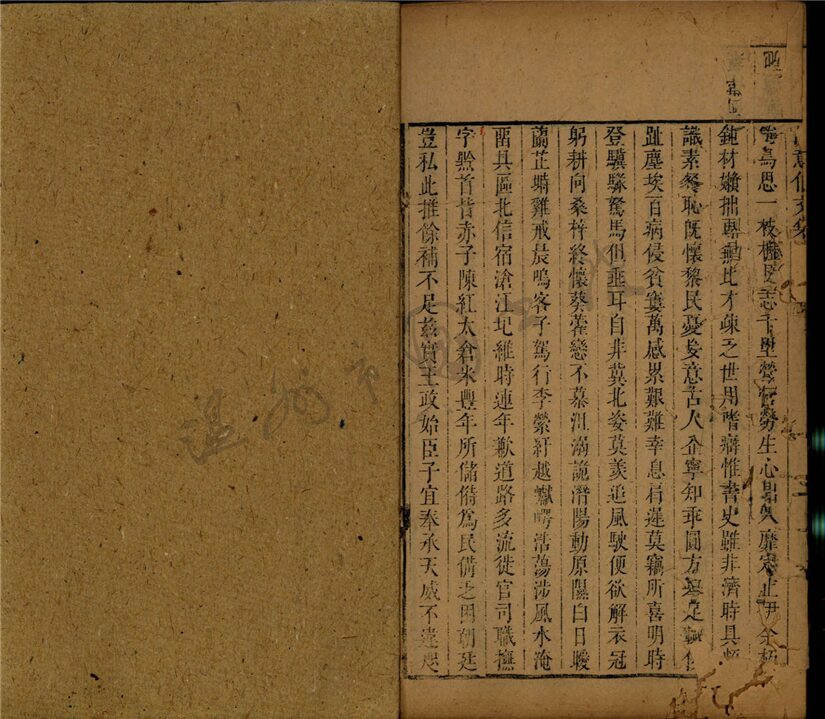 文集
思一枝棲千里勞生心靡寧止伊余
鈍材嬾拙專比才疎乏世用嗜癖惟書史雖非濟時具
識素餐恥既懷黎民憂意古人企寧知乖圓方足
趾塵埃百病侵貧窶萬感累艱難幸息肩遲莫竊所喜明時
登驥騄駑馬但垂耳自非冀北姿莫羨追風駛便欲解衣冠
躬耕向桑梓終懷葵藿戀不慕沮溺詭潛陽動原隰白日曖
蘭芷塒雞戒晨鳴客子駕行李縈紆越巘崿浩蕩涉風水淹
畱具區北信宿滄江圮維時連年歉道路多流徙官司職撫
字黔首昔赤子陳紅太倉米豐年所儲偹為民備乏困朝廷
豈私此推餘補不足茲實王政始臣子宜奉承天威不違咫
溫州市圖